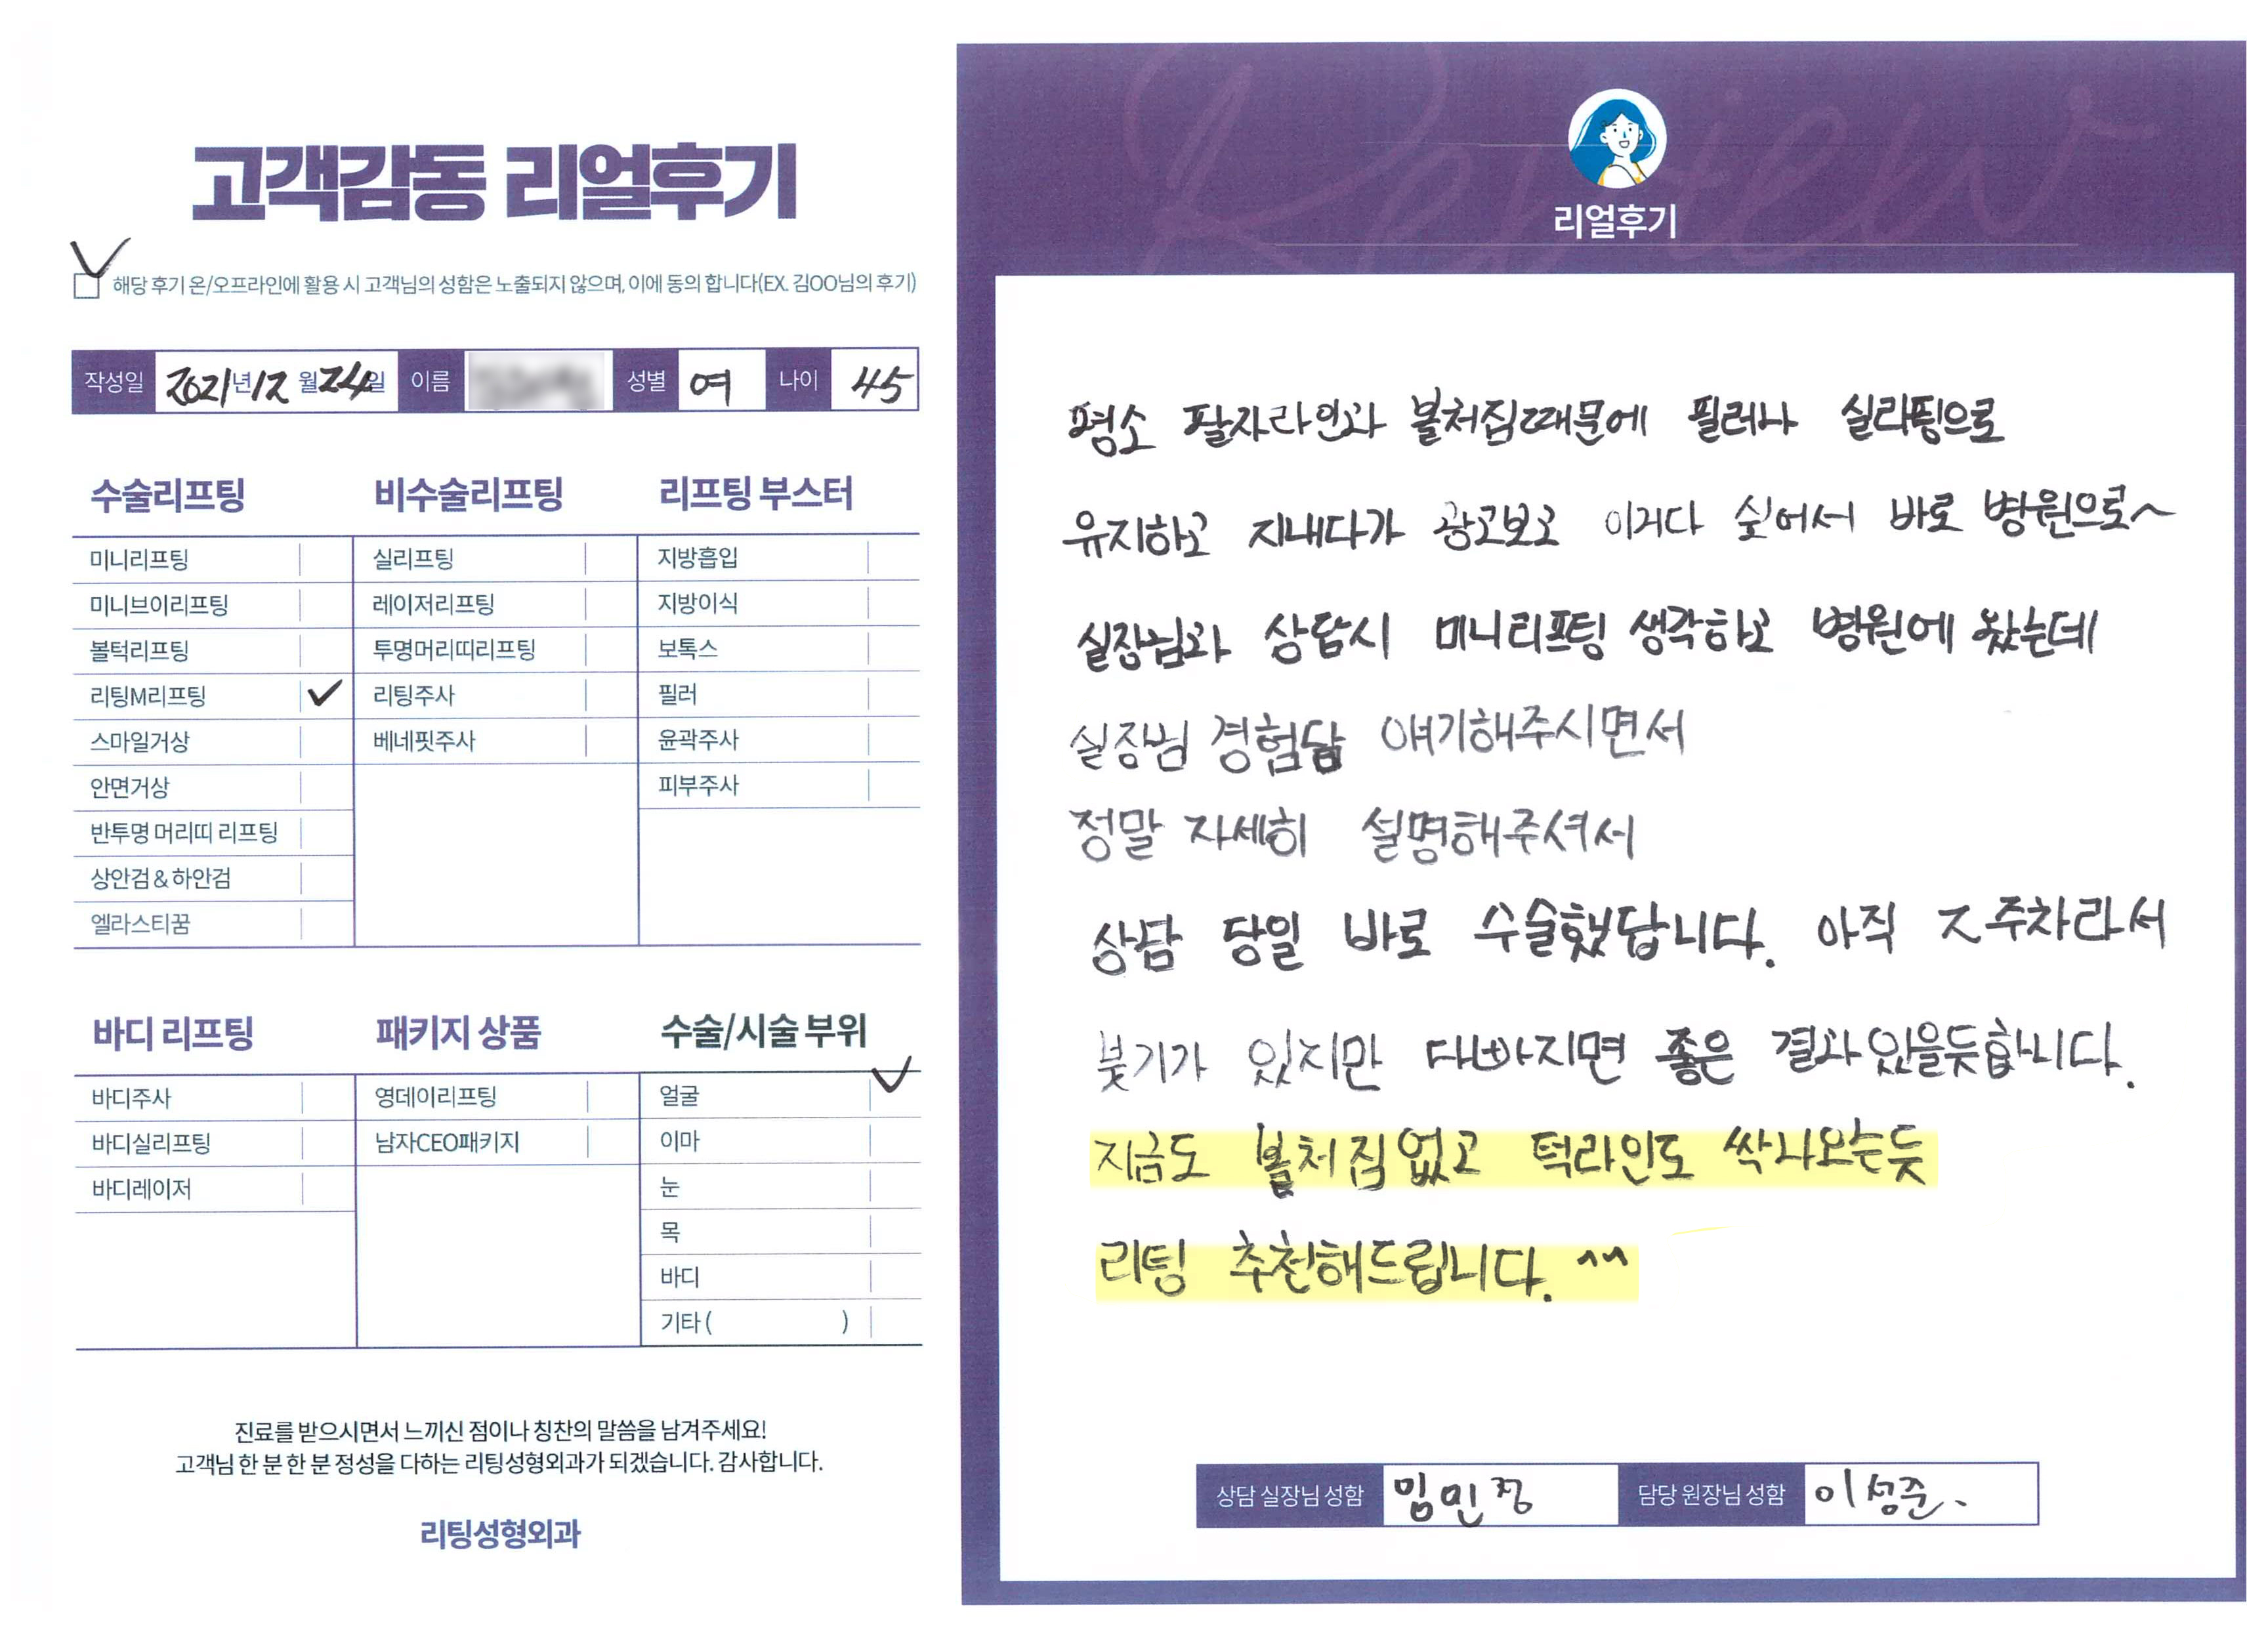 고객감동 리얼후기
해당 후기 온/오프라인에 활용 시 고객님의 성함은 노출되지 않으며, 이에 동의 합니다(EX. 김OO님의 후기)
작성일 2021년 12월 24일 이름 성별 여 나이 45
수술리프팅
미니리프팅
미니브이리프팅
볼턱리프팅
리팅M리프팅
스마일거상
안면거상
반투명 머리띠 리프팅
상안검&하안검
엘라스티꿈
비수술리프팅
실리프팅
레이저리프팅
투명머리띠리프팅
리팅주사
베네핏주사
리프팅 부스터
지방흡입
지방이식
보톡스
필러
윤곽주사
피부주사
바디 리프팅
바디주사
바디실리프팅
바디레이저
패키지 상품
영데이리프팅
남자CEO패키지
수술/시술 부위
얼굴
이마
눈
목
바디
기타 ( )
진료를 받으시면서 느끼신 점이나 칭찬의 말씀을 남겨주세요!
고객님 한 분 한 분 정성을 다하는 리팅성형외과가 되겠습니다. 감사합니다.
리팅성형외과
Review
리얼후기
평소 팔자라인과 볼처짐때문에 필러나 실리팅으로
유지하고 지내다가 광고보고 이거다 싶어서 바로 병원으로~
실장님과 상담시 미니리프팅 생각하고 병원에 왔는데
실장님 경험담 얘기해주시면서
정말 자세히 설명해주셔서
상담 당일 바로 수술했답니다. 아직 2주차라서
붓기가 있지만 다빠지면 좋은 결과있을듯합니다.
지금도 볼처짐없고 턱라인도 싹나오는듯
리팅 추천해드립니다. ^^
상담 실장님 성함 임민정 담당 원장님 성함 이성준.